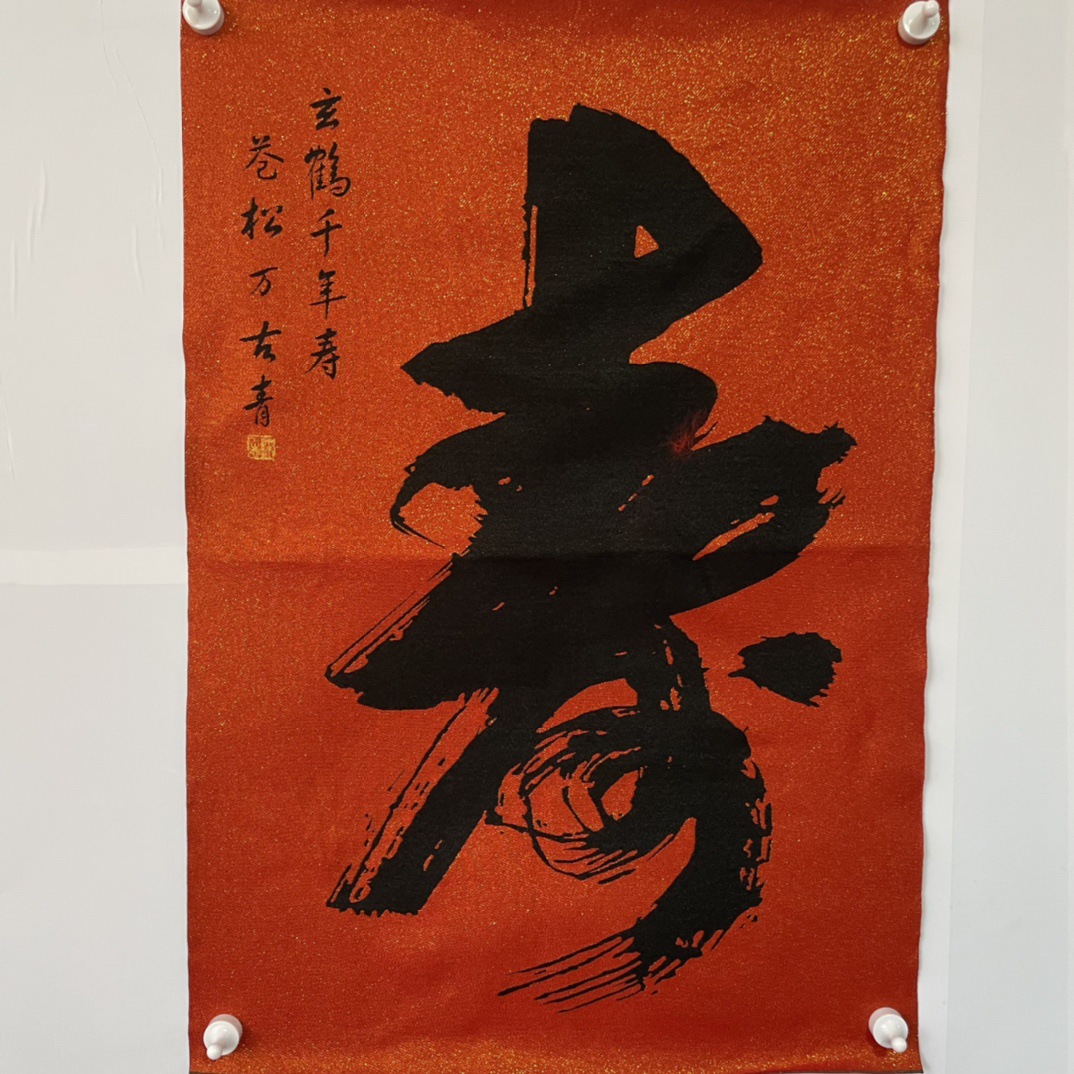 寿
玄鶴千年寿
苍松万古青